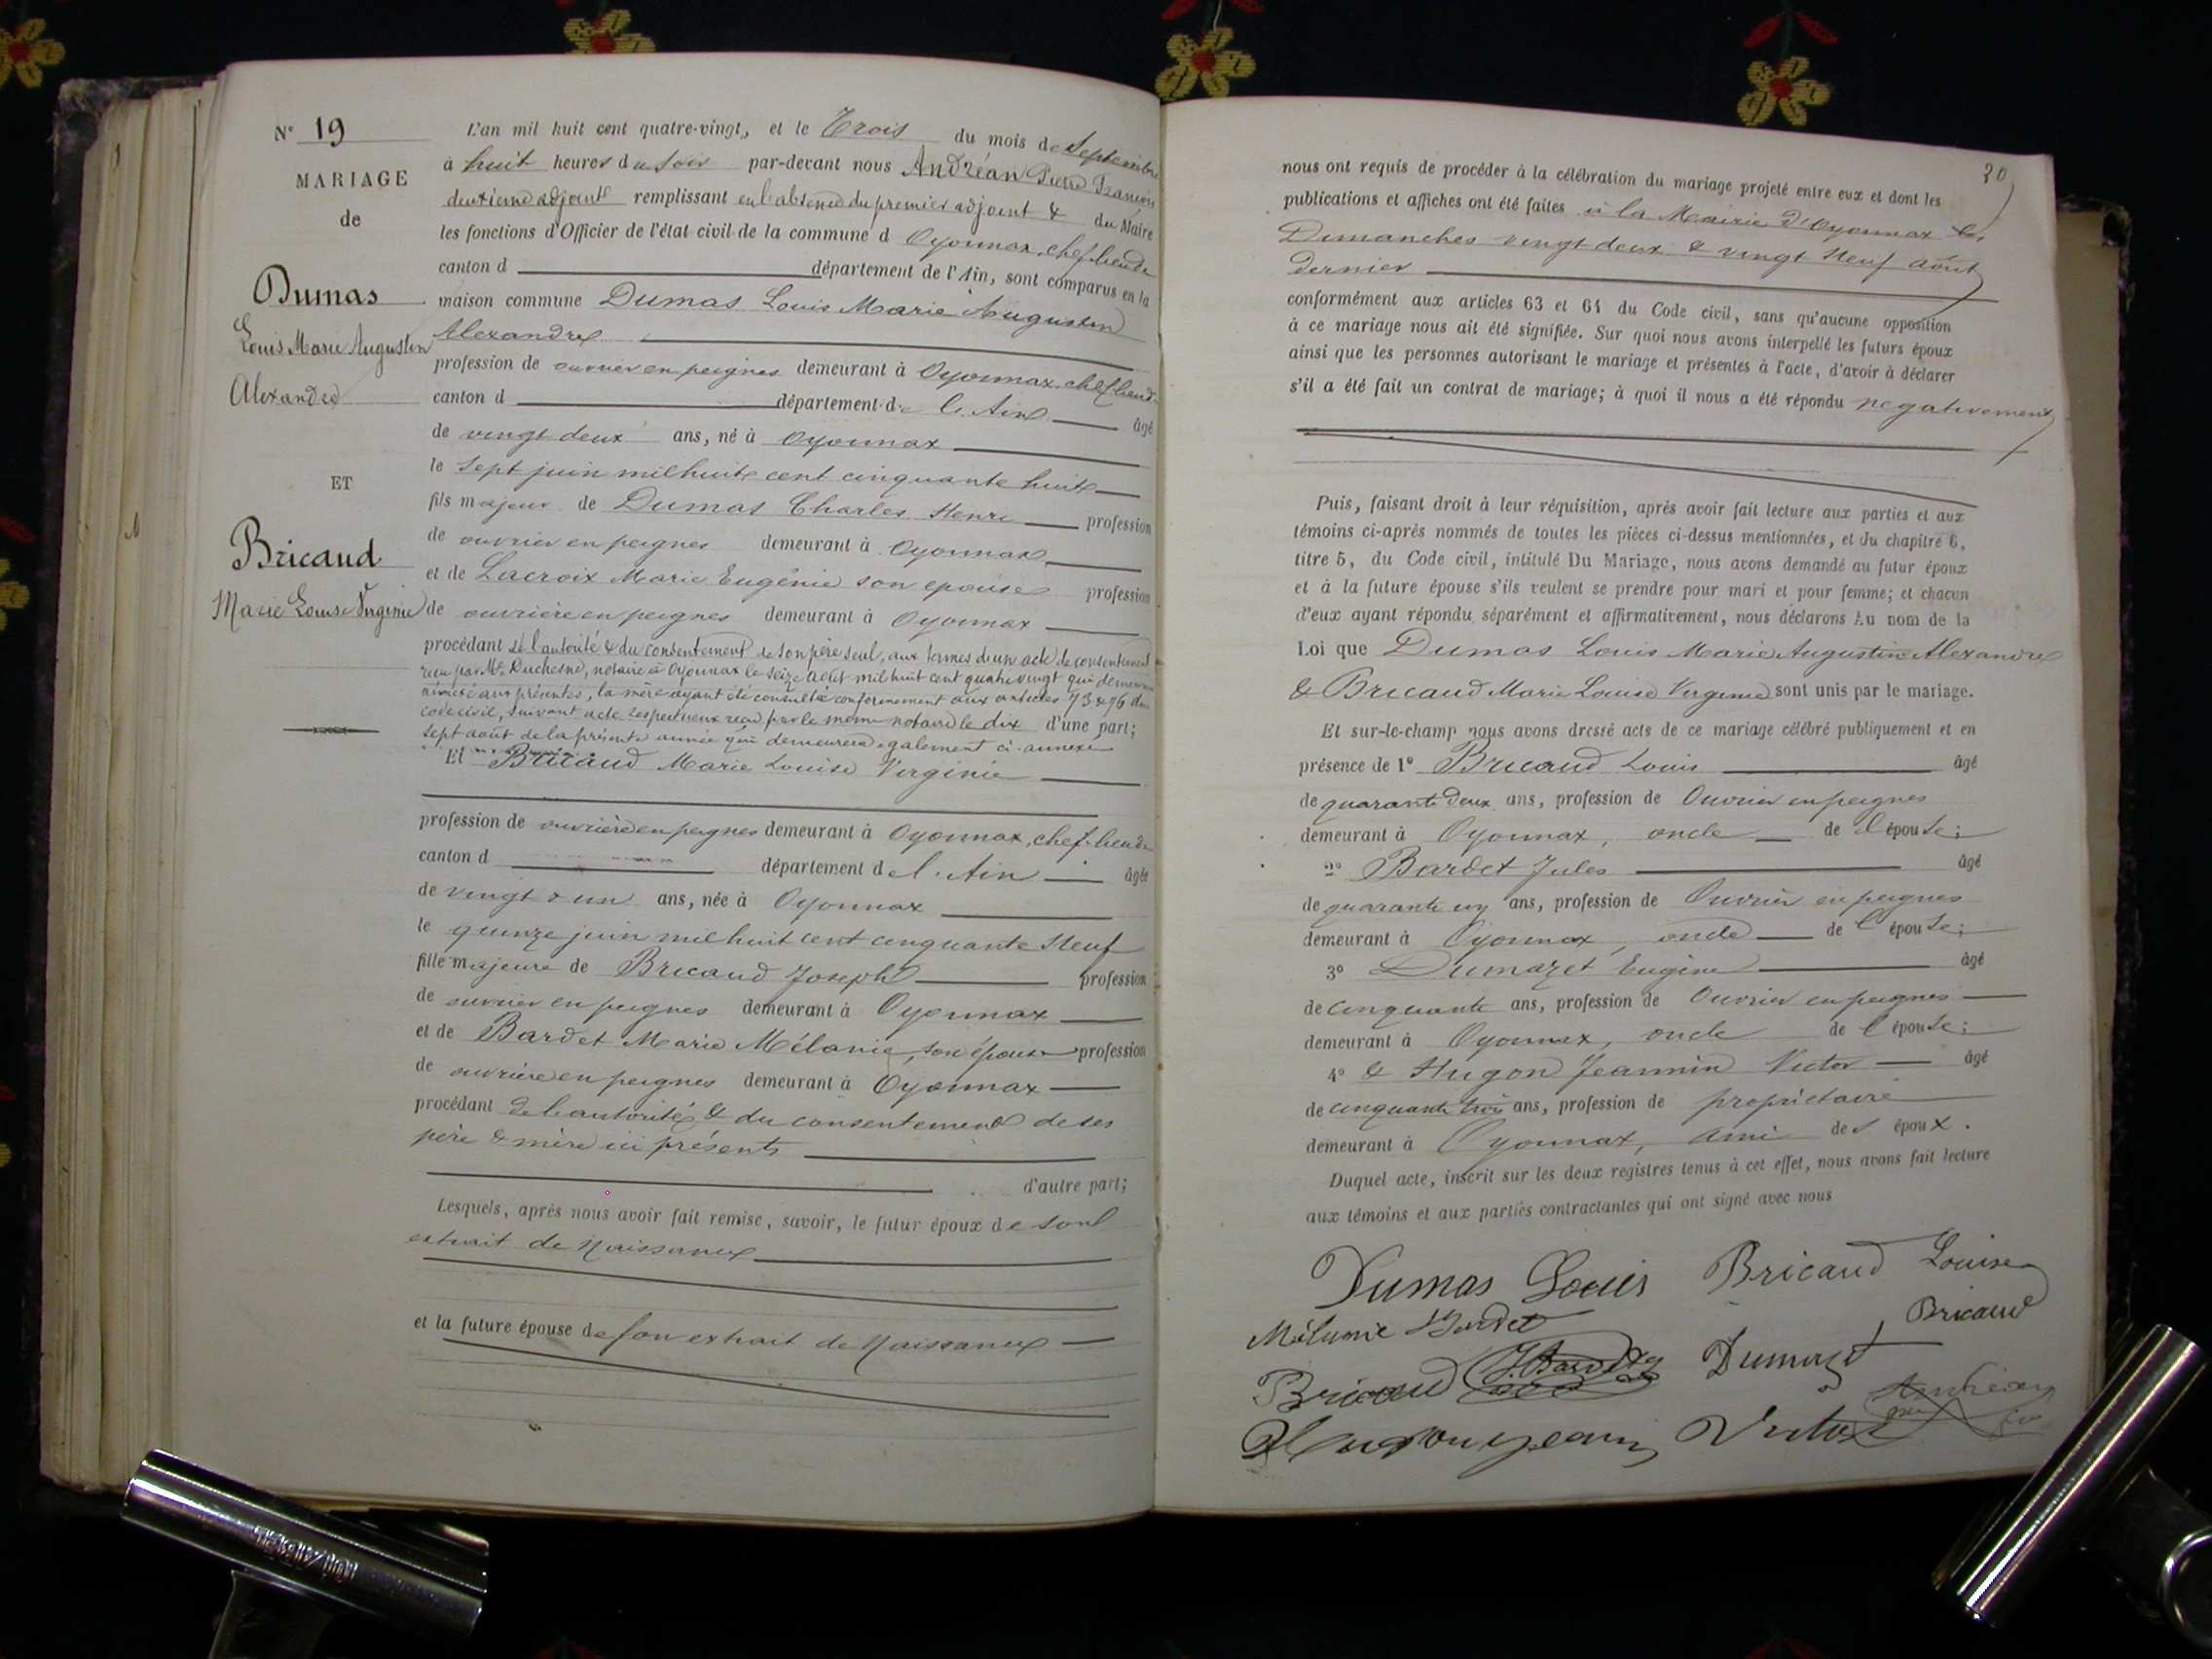 N° 19
MARIAGE
de
Dumas
Louis Marie Augustin
Alexandre
ET
Bricaud
Marie Louise Virginie
L'an mil huit cent quatre-vingt, et le Trois du mois de Septembre
à huit heures du soir par-devant nous Andréan Pierre François
deuxième adjoint remplissant en l'absence du premier adjoint & du Maire
les fonctions d'Officier de l'état civil de la commune d Oyonnax, chef-lieu de
canton d département de l'Ain, sont comparus en la
maison commune Dumas Louis Marie Augustin
Alexandre
profession de ouvrier en peignes demeurant à Oyonnax, chef-lieu de
canton d département de l'Ain âgé
de vingt deux ans, né à Oyonnax
le sept juin mil huit cent cinquante huit
fils majeur de Dumas Charles Henri profession
de ouvrier en peignes demeurant à Oyonnax
et de Lacroix Marie Eugénie son epouse profession
de ouvrière en peignes demeurant à Oyonnax
procédant de l'autorité & du consentement de son père seul, aux termes d'un acte de consentement
reçu par Me Duchesne, notaire à Oyonnax le seize août mil huit cent quatre vingt qui demeurera
annexé aux présentes, la mère ayant été consultée conformement aux articles 73 & 76 du
code civil, suivant acte respectueux reçu par le même notaire le dix d'une part;
sept août de la présente année qui demeurera egalement ci-annexé
Et Bricaud Marie Louise Virginie
profession de ouvrière en peignes demeurant à Oyonnax, chef-lieu de
canton d département de l'Ain âgée
de vingt & un ans, née à Oyonnax
le quinze juin mil huit cent cinquante neuf
fille majeure de Bricaud Joseph profession
de ouvrier en peignes demeurant à Oyonnax
et de Bardet Marie Mélanie, son épouse profession
de ouvrière en peignes demeurant à Oyonnax
procédant de l'autorité & du consentement de ses
père & mère ici présents
d'autre part;
Lesquels, après nous avoir fait remise, savoir, le futur époux de son
extrait de naissance
et la future épouse de son extrait de naissance
20
nous ont requis de procéder à la célébration du mariage projeté entre eux et dont les
publications et affiches ont été faites à la Mairie d'Oyonnax les
Dimanches vingt deux & vingt neuf août
dernier
conformément aux articles 63 et 64 du Code civil, sans qu'aucune opposition
à ce mariage nous ait été signifiée. Sur quoi nous avons interpellé les futurs époux
ainsi que les personnes autorisant le mariage et présentes à l'acte, d'avoir à déclarer
s'il a été fait un contrat de mariage; à quoi il nous a été répondu negativement
Puis, faisant droit à leur réquisition, après avoir fait lecture aux parties et aux
témoins ci-après nommés de toutes les pièces ci-dessus mentionnées, et du chapitre 6,
titre 5, du Code civil, intitulé Du Mariage, nous avons demandé au futur époux
et à la future épouse s'ils veulent se prendre pour mari et pour femme; et chacun
d'eux ayant répondu séparément et affirmativement, nous déclarons Au nom de la
Loi que Dumas Louis Marie Augustin Alexandre
& Bricaud Marie Louise Virginie sont unis par le mariage.
Et sur-le-champ nous avons dressé acte de ce mariage célébré publiquement et en
présence de 1° Bricaud Louis âgé
de quarante deux ans, profession de Ouvrier en peignes
demeurant à Oyonnax, oncle de l'épouse;
2° Bardet Jules âgé
de quarante un ans, profession de Ouvrier en peignes
demeurant à Oyonnax, oncle de l'épouse;
3° Dumazet Eugène âgé
de cinquante ans, profession de Ouvrier en peignes
demeurant à Oyonnax, oncle de l'épouse;
4° & Hugon Jeannin Victor âgé
de cinquante trois ans, profession de propriétaire
demeurant à Oyonnax, ami des époux.
Duquel acte, inscrit sur les deux registres tenus à cet effet, nous avons fait lecture
aux témoins et aux parties contractantes qui ont signé avec nous
Dumas Louis Bricaud Louise
Mélanie Bardet Bricaud
Bricaud J. Bardet Dumazet
Hugon Jeannin Victor Andréan